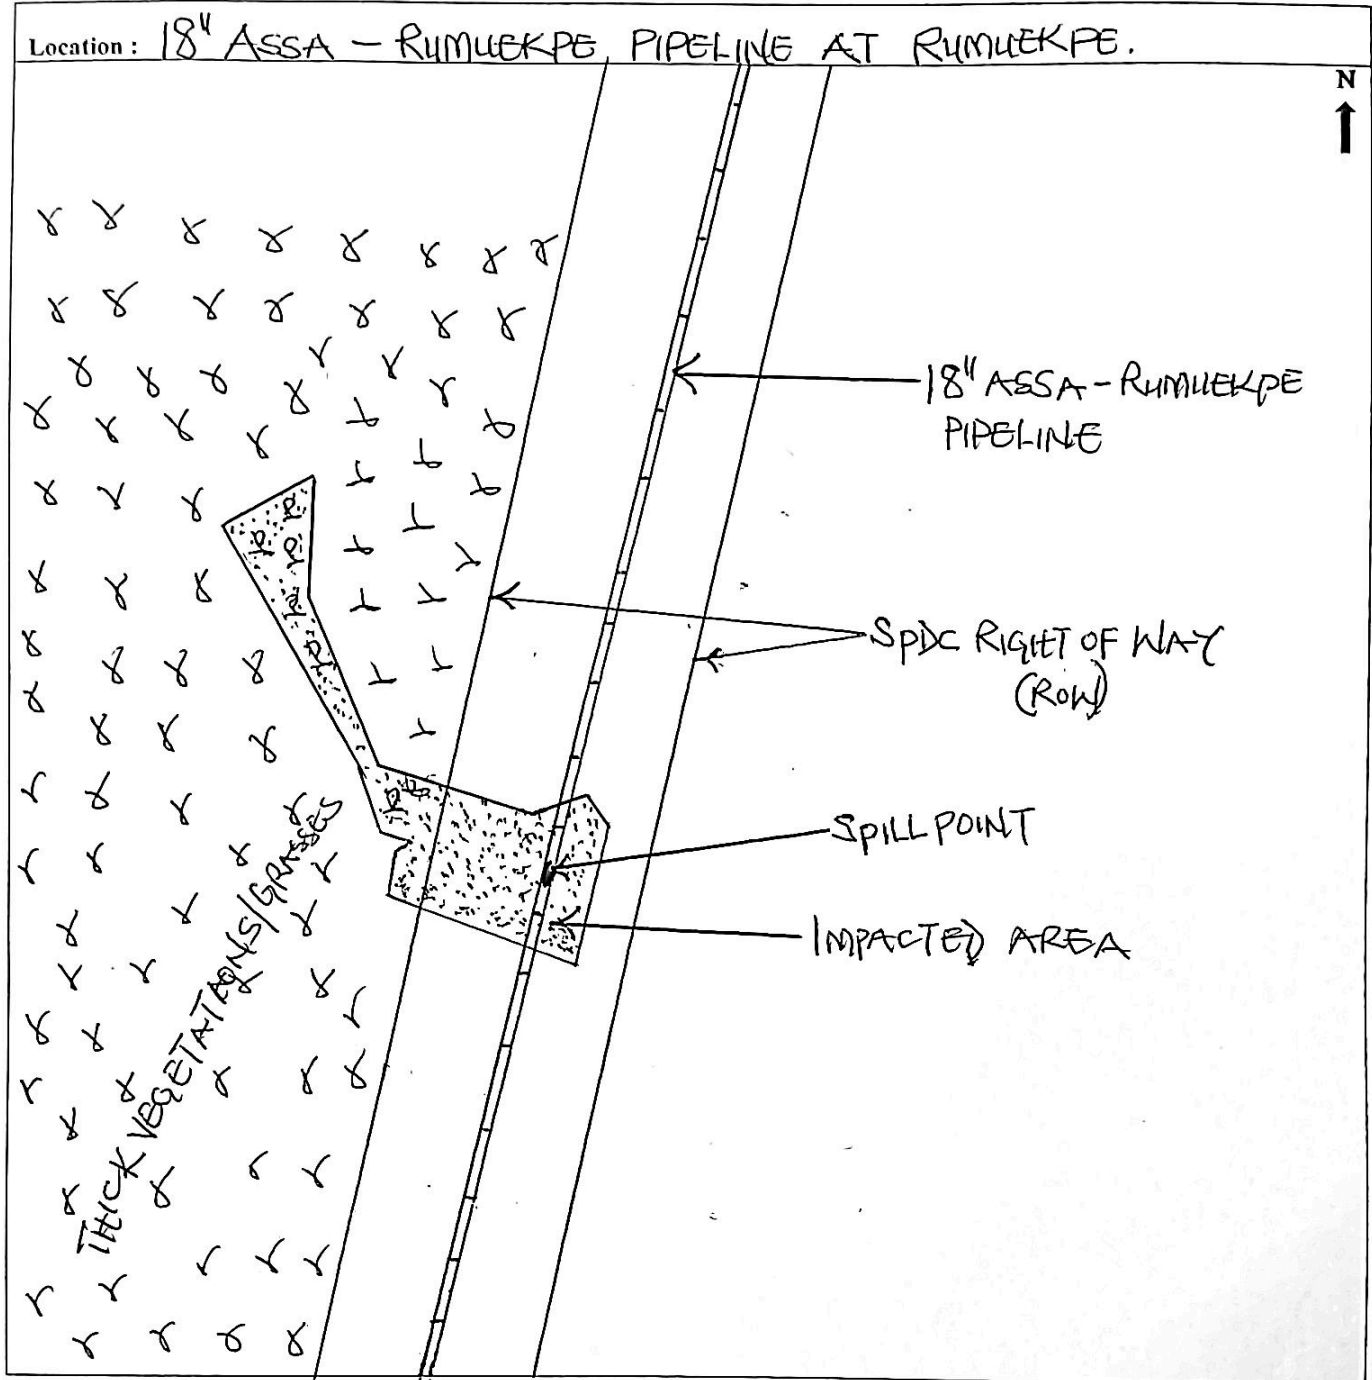 Location : 18" ASSA - RUMUEKPE PIPELINE AT RUMUEKPE.
N
18" ASSA - RUMUEKPE
PIPELINE
SPDC RIGHT OF WAY
(ROW)
SPILL POINT
IMPACTED AREA
THICK VEGETATIONS/GRASSES